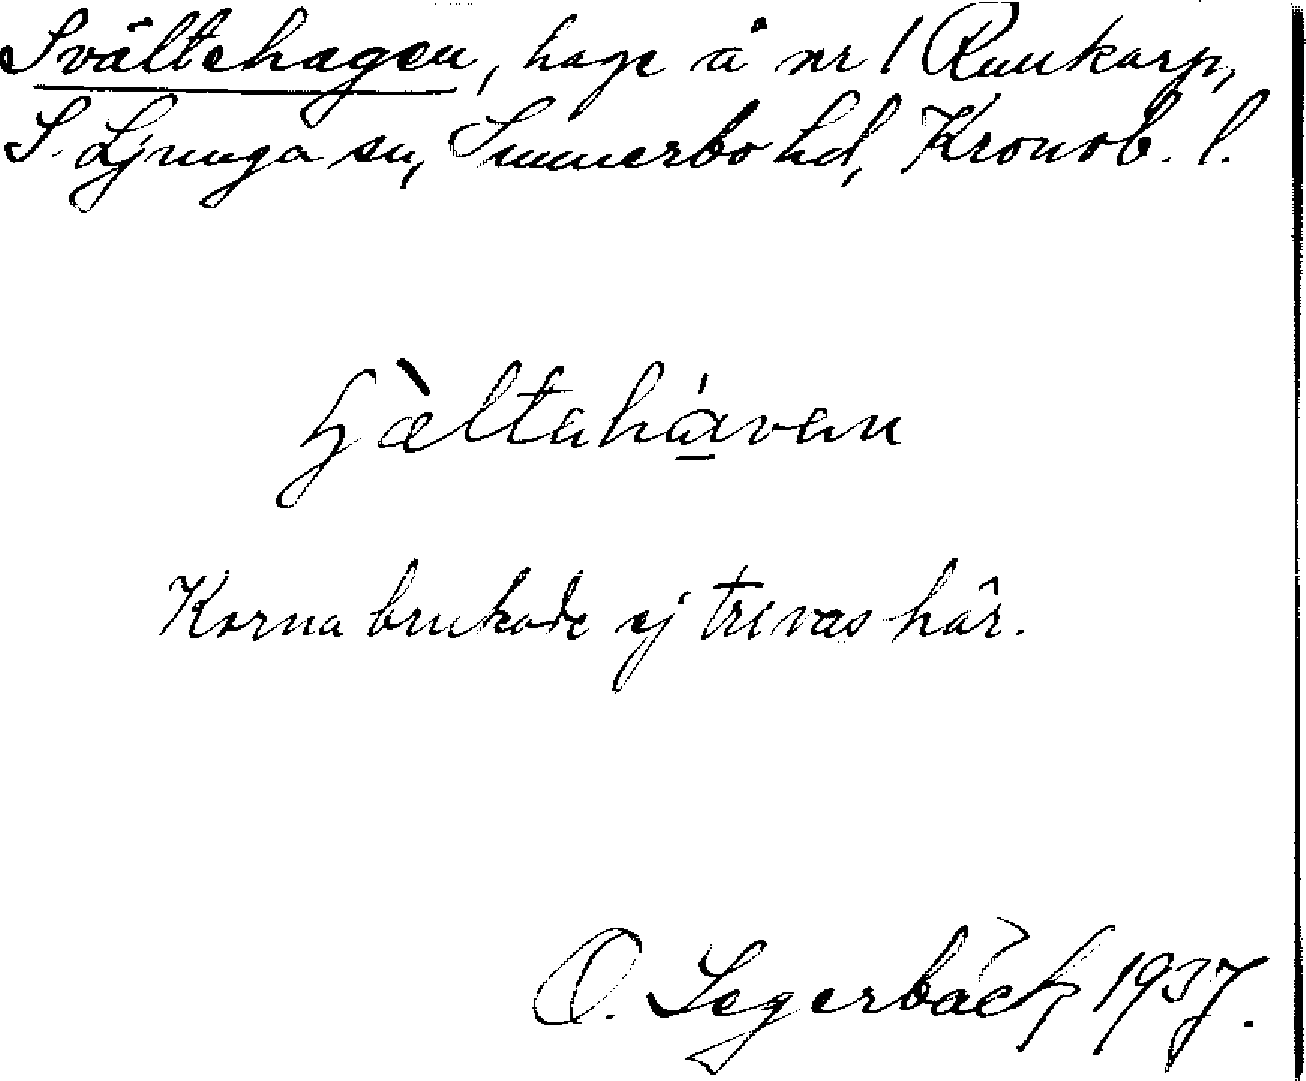 Svältehagen, hage å nr 1 Runkarp,
S. Ljunga sn, Sunnerbo hd, Kronob. l.
Korna brukade ej trivas här.
O. Segerbäck, 1937.